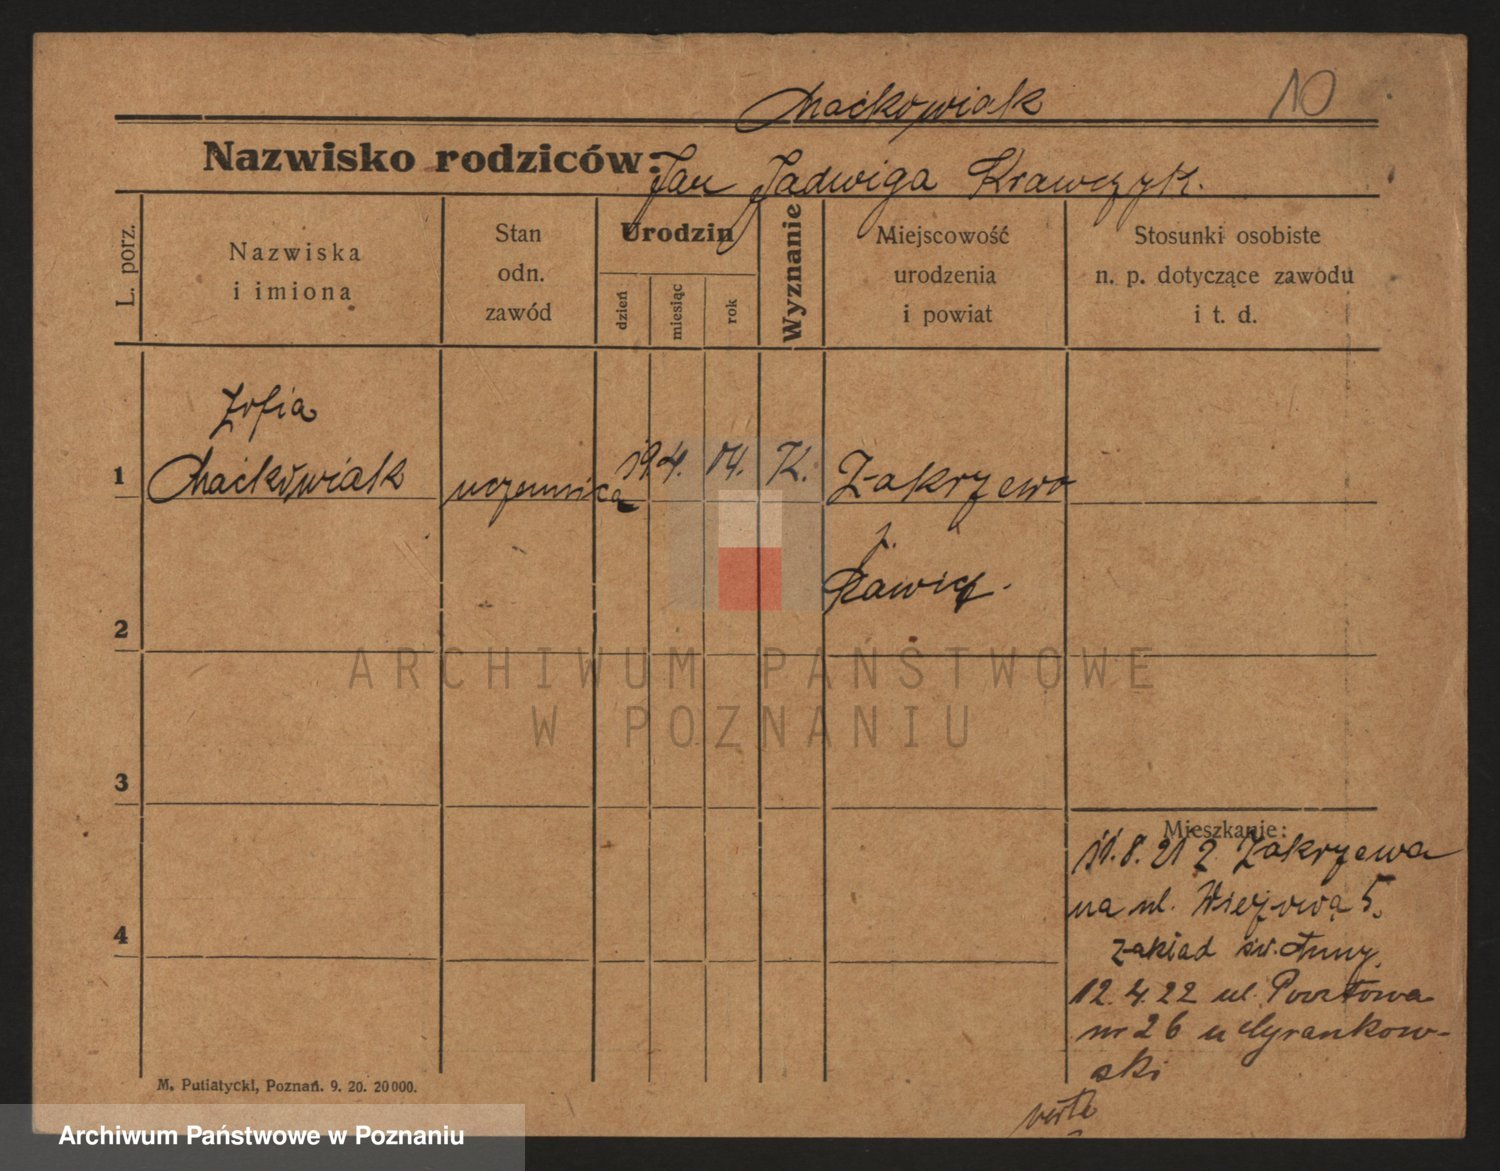 Maćkowiak 10
Nazwisko rodziców: Jan Jadwiga Krawczyk.
L. porz.
Nazwiska
i imiona
Stan
odn.
zawód
Urodzin
dzień
miesiąc
rok
Wyznanie
Miejscowość
urodzenia
i powiat
Stosunki osobiste
n. p. dotyczące zawodu
i t. d.
1
Zofia
Maćkowiak
uczennica
19. 4. 04. K. Zakrzewo
p.
Rawicz.
2
3
4
ARCHIWUM PAŃSTWOWE
W POZNANIU
Mieszkanie:
11.8.21 z Zakrzewa
na ul. 5.
zakład św. Anny.
12.4.22 ul. Pocztowa
nr 26 u Cyrankow-
ski
verte
M. Putiatycki, Poznań. 9. 20. 20000.
Archiwum Państwowe w Poznaniu